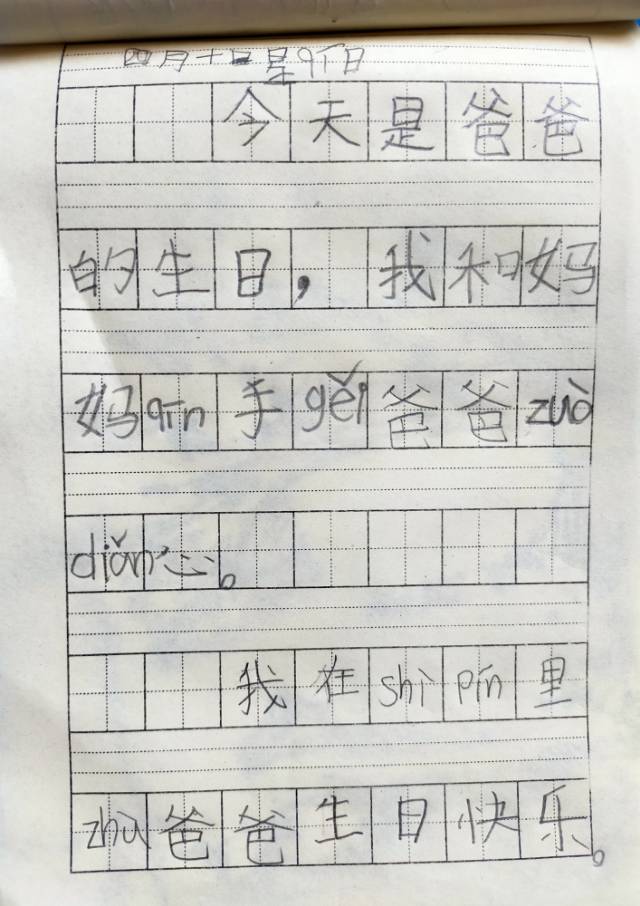 四月十日星qī日
今天是爸爸
的生日，我和妈
妈qīn手gěi爸爸zuò
diǎn心。
我在shìpín里
zhù爸爸生日快乐。